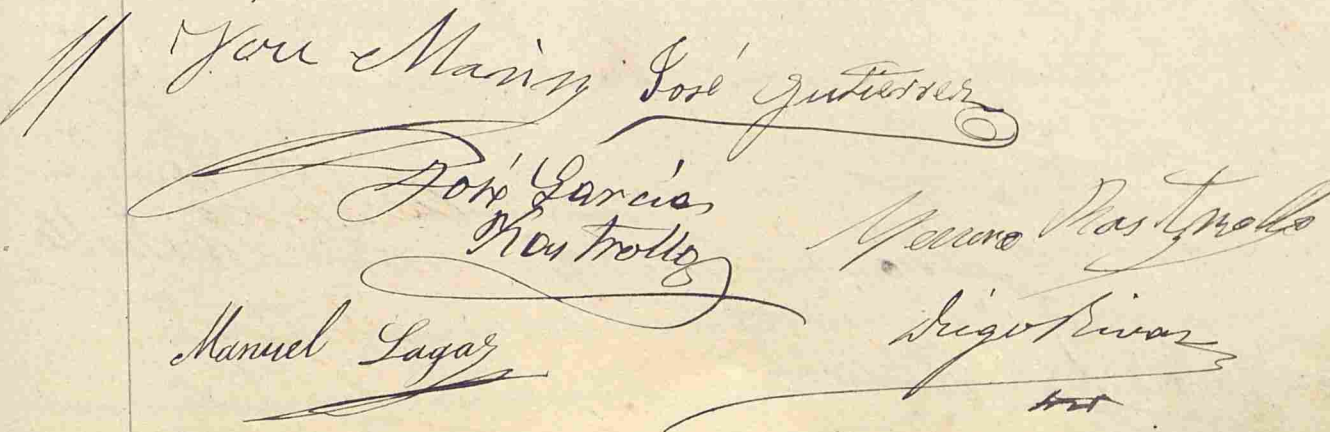 José Marin José Gutierrez
José García
Rastrollo
Rastrollo
Manuel Lagar
Diego Rivas